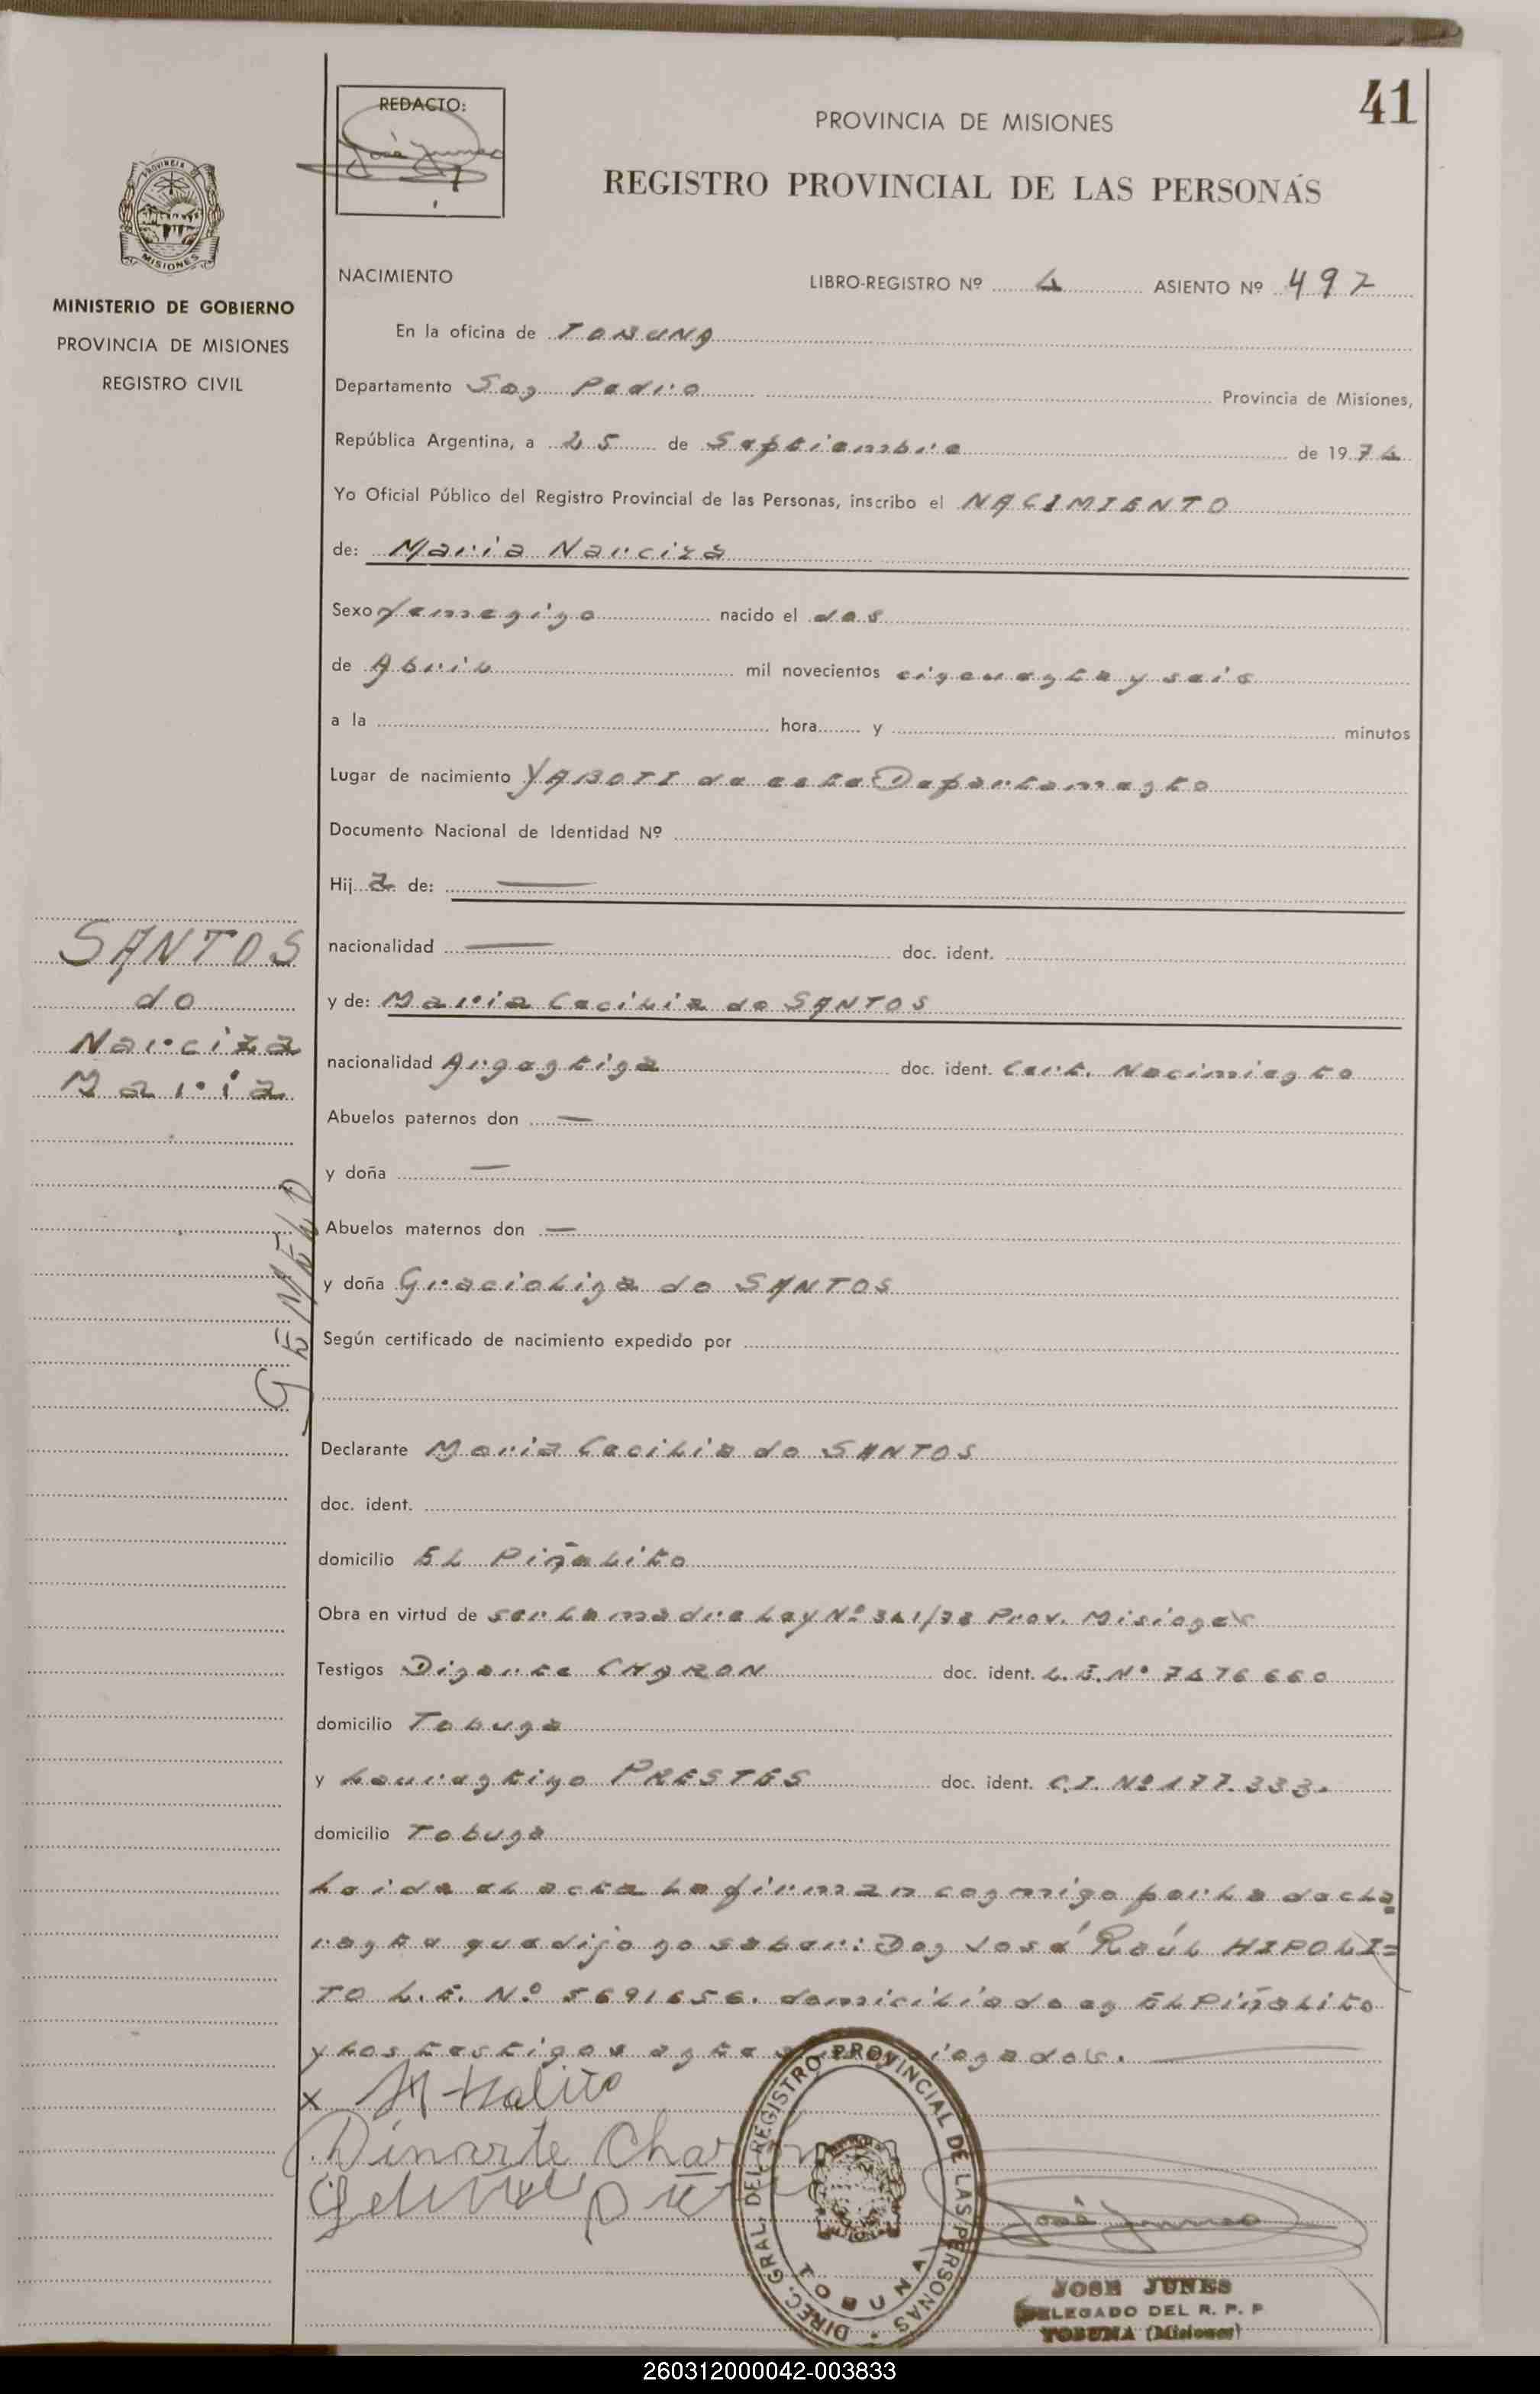 41
REDACTO:
PROVINCIA DE MISIONES
REGISTRO PROVINCIAL DE LAS PERSONAS
PROVINCIA
MISIONES
MINISTERIO DE GOBIERNO
PROVINCIA DE MISIONES
REGISTRO CIVIL
NACIMIENTO LIBRO-REGISTRO Nº 4 ASIENTO Nº 497
En la oficina de TOBUNA
Departamento San Pedro Provincia de Misiones,
República Argentina, a 25 de Septiembre de 1974
Yo Oficial Público del Registro Provincial de las Personas, inscribo el NACIMIENTO
de: Maria Narciza
Sexo femenino nacido el dos
de Abril mil novecientos cincuenta y seis
a la hora y minutos
Lugar de nacimiento YABOTI de este Departamento
Documento Nacional de Identidad Nº
Hija de: —
nacionalidad — doc. ident.
y de: Maria Cecilia do SANTOS
nacionalidad Argentina doc. ident. Cert. Nacimiento
Abuelos paternos don —
y doña —
Abuelos maternos don —
y doña Graciolina do SANTOS
Según certificado de nacimiento expedido por
SANTOS
do
Narciza
Maria
GEMELO
Declarante Maria Cecilia do SANTOS
doc. ident.
domicilio EL Piñalito
Obra en virtud de ser la madre Ley Nº 341/73 Prov. Misiones
Testigos Dinarte CHARON doc. ident. L.E. Nº 7476660
domicilio Tobuna
y Laurentino PRESTES doc. ident. C.I. Nº 177.333.
domicilio Tobuna
Leida el acta la firman conmigo por la decla
rante que dijo no saber: Don José Raúl HIPOLI=
TO L.E. Nº 5691656. domiciliado en EL Piñalito
y los testigos ante
x
Dinarte Charon
DIREC. GRAL. DEL REGISTRO PROVINCIAL DE LAS PERSONAS
TOBUNA
JOSE JUNES
DELEGADO DEL R. P. P
TOBUNA (Misiones)
260312000042-003833